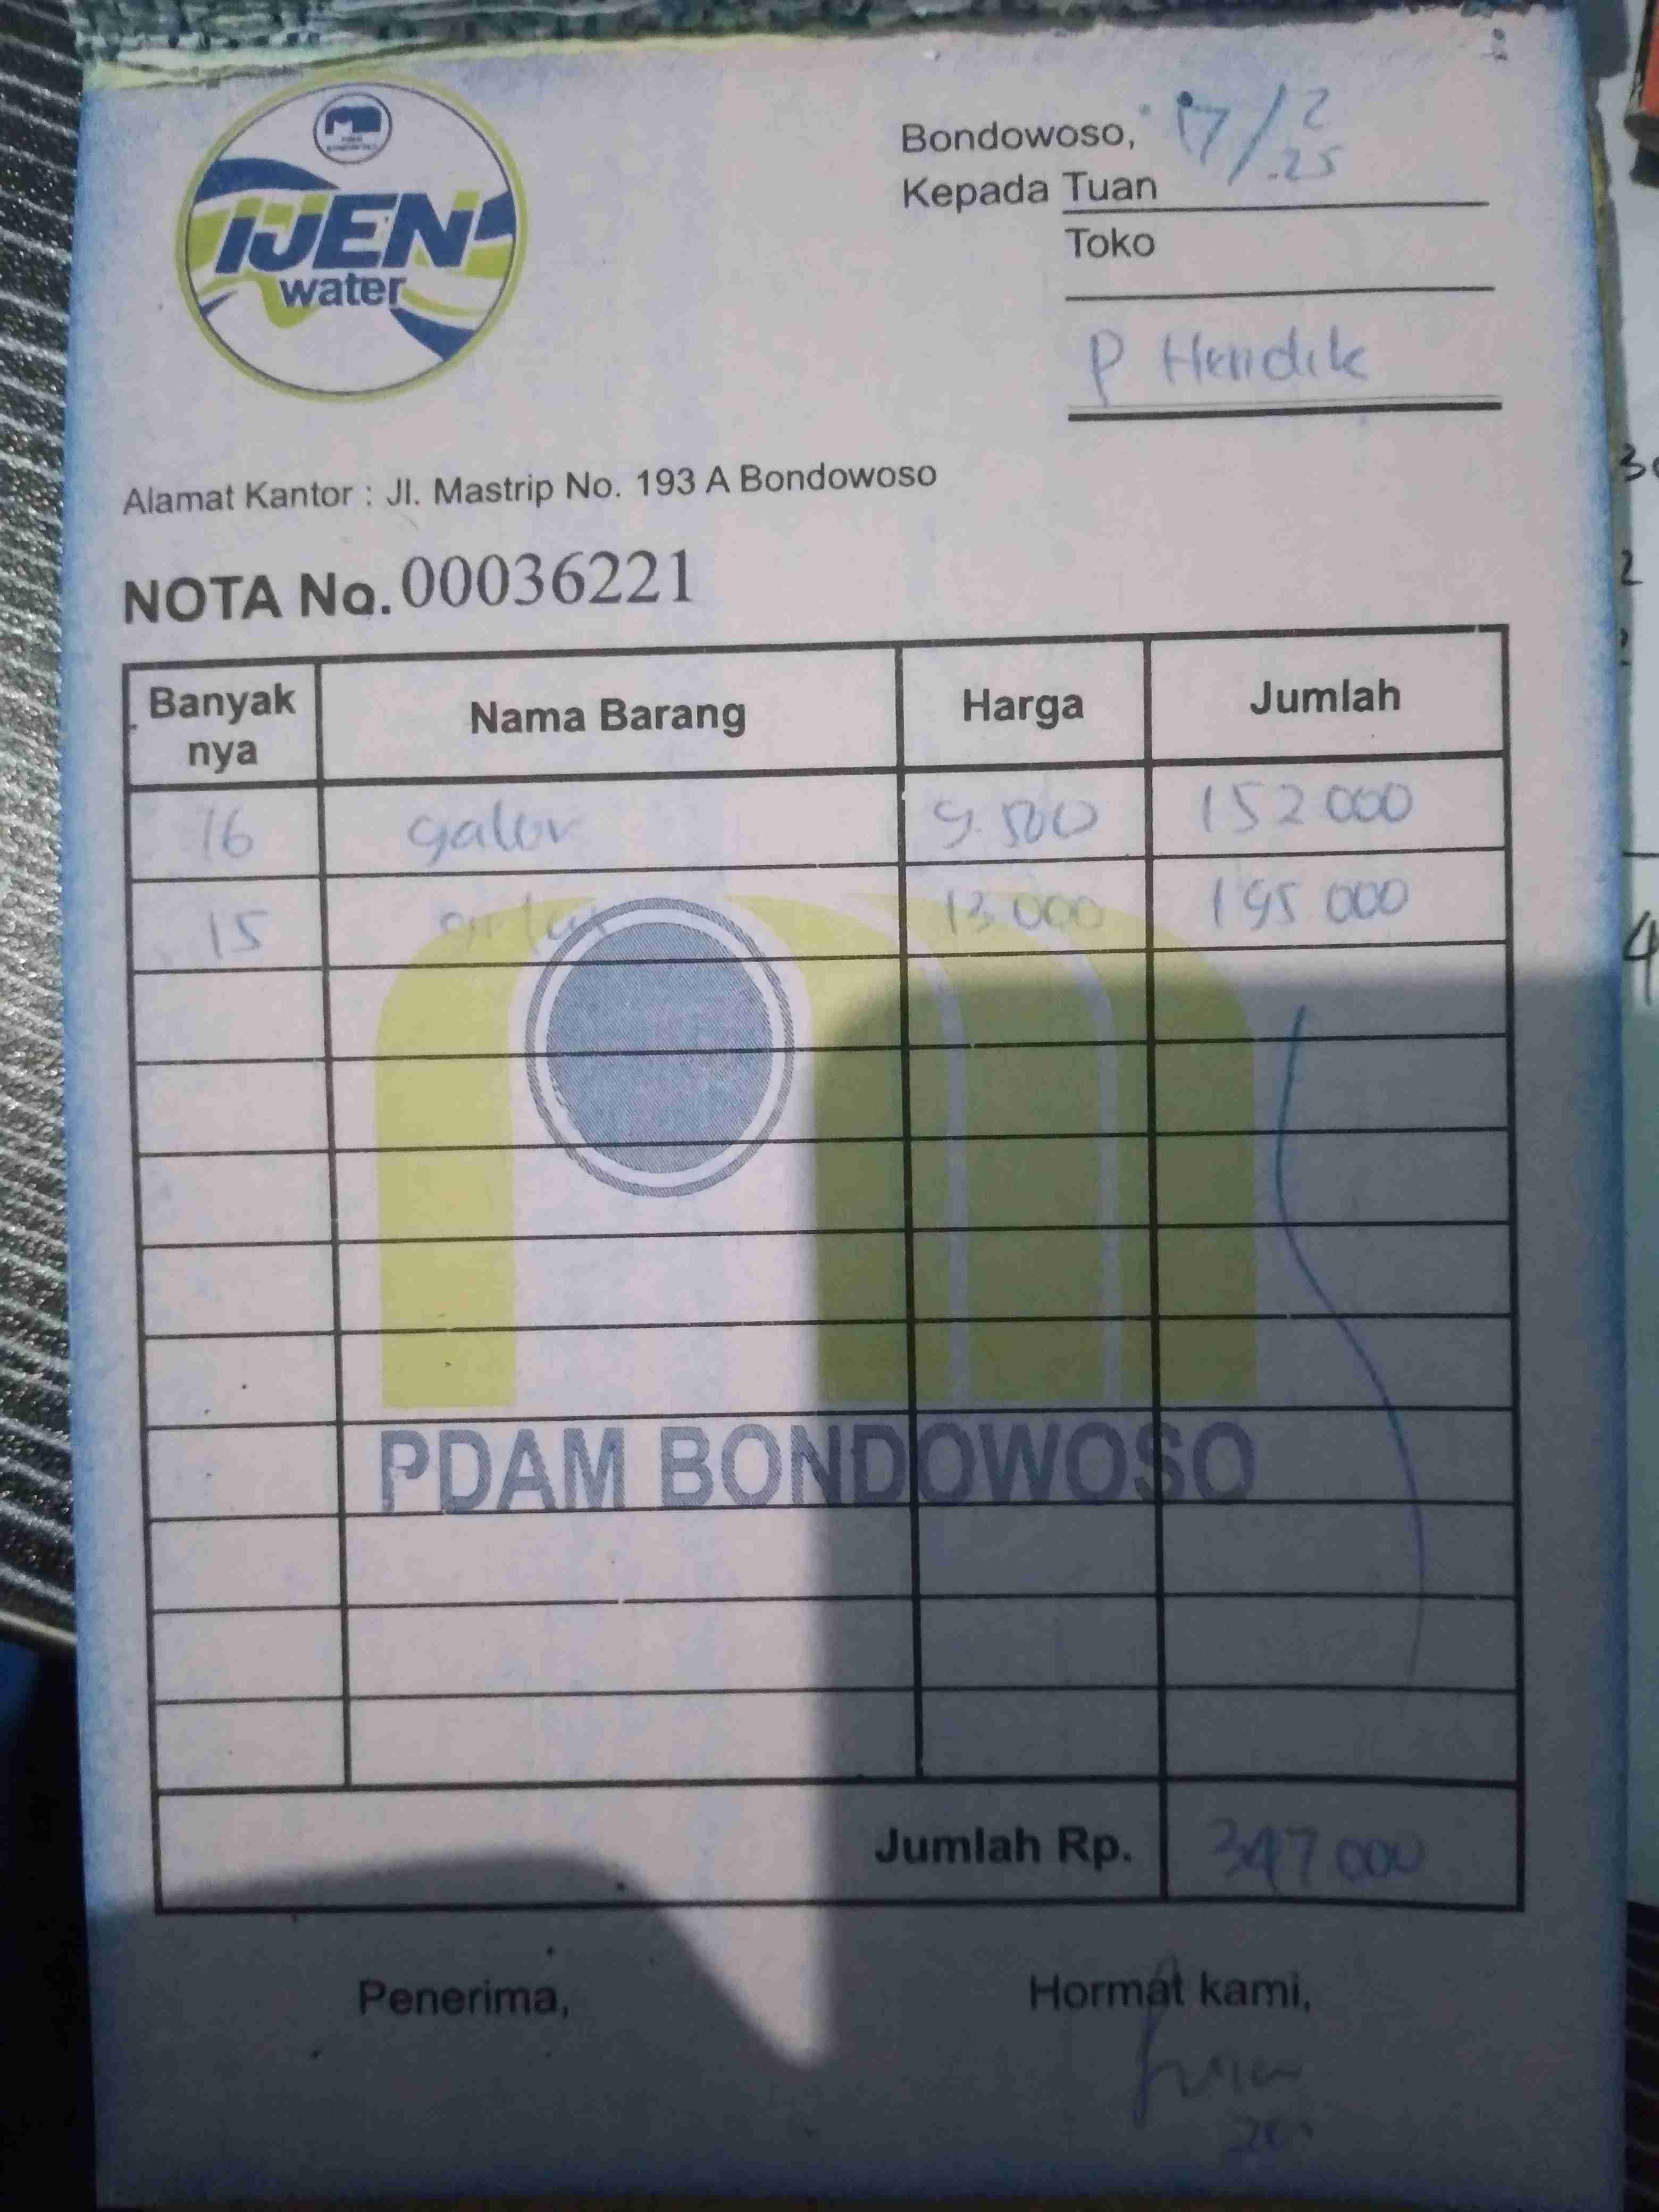 IJEN
water
Bondowoso, 17/2
.25
Kepada Tuan
Toko
P Hendik
Alamat Kantor : Jl. Mastrip No. 193 A Bondowoso
NOTA No. 00036221
Banyak nya Nama Barang Harga Jumlah
16 galon 9.500 152 000
15 13 000 195 000
PDAM BONDOWOSO
Jumlah Rp. 347 000
Penerima, Hormat kami,